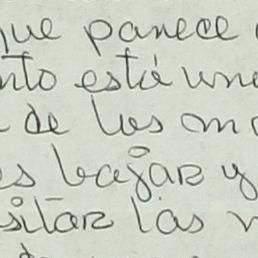 que parece
nto está una
de los m
es bajar y
sitar las